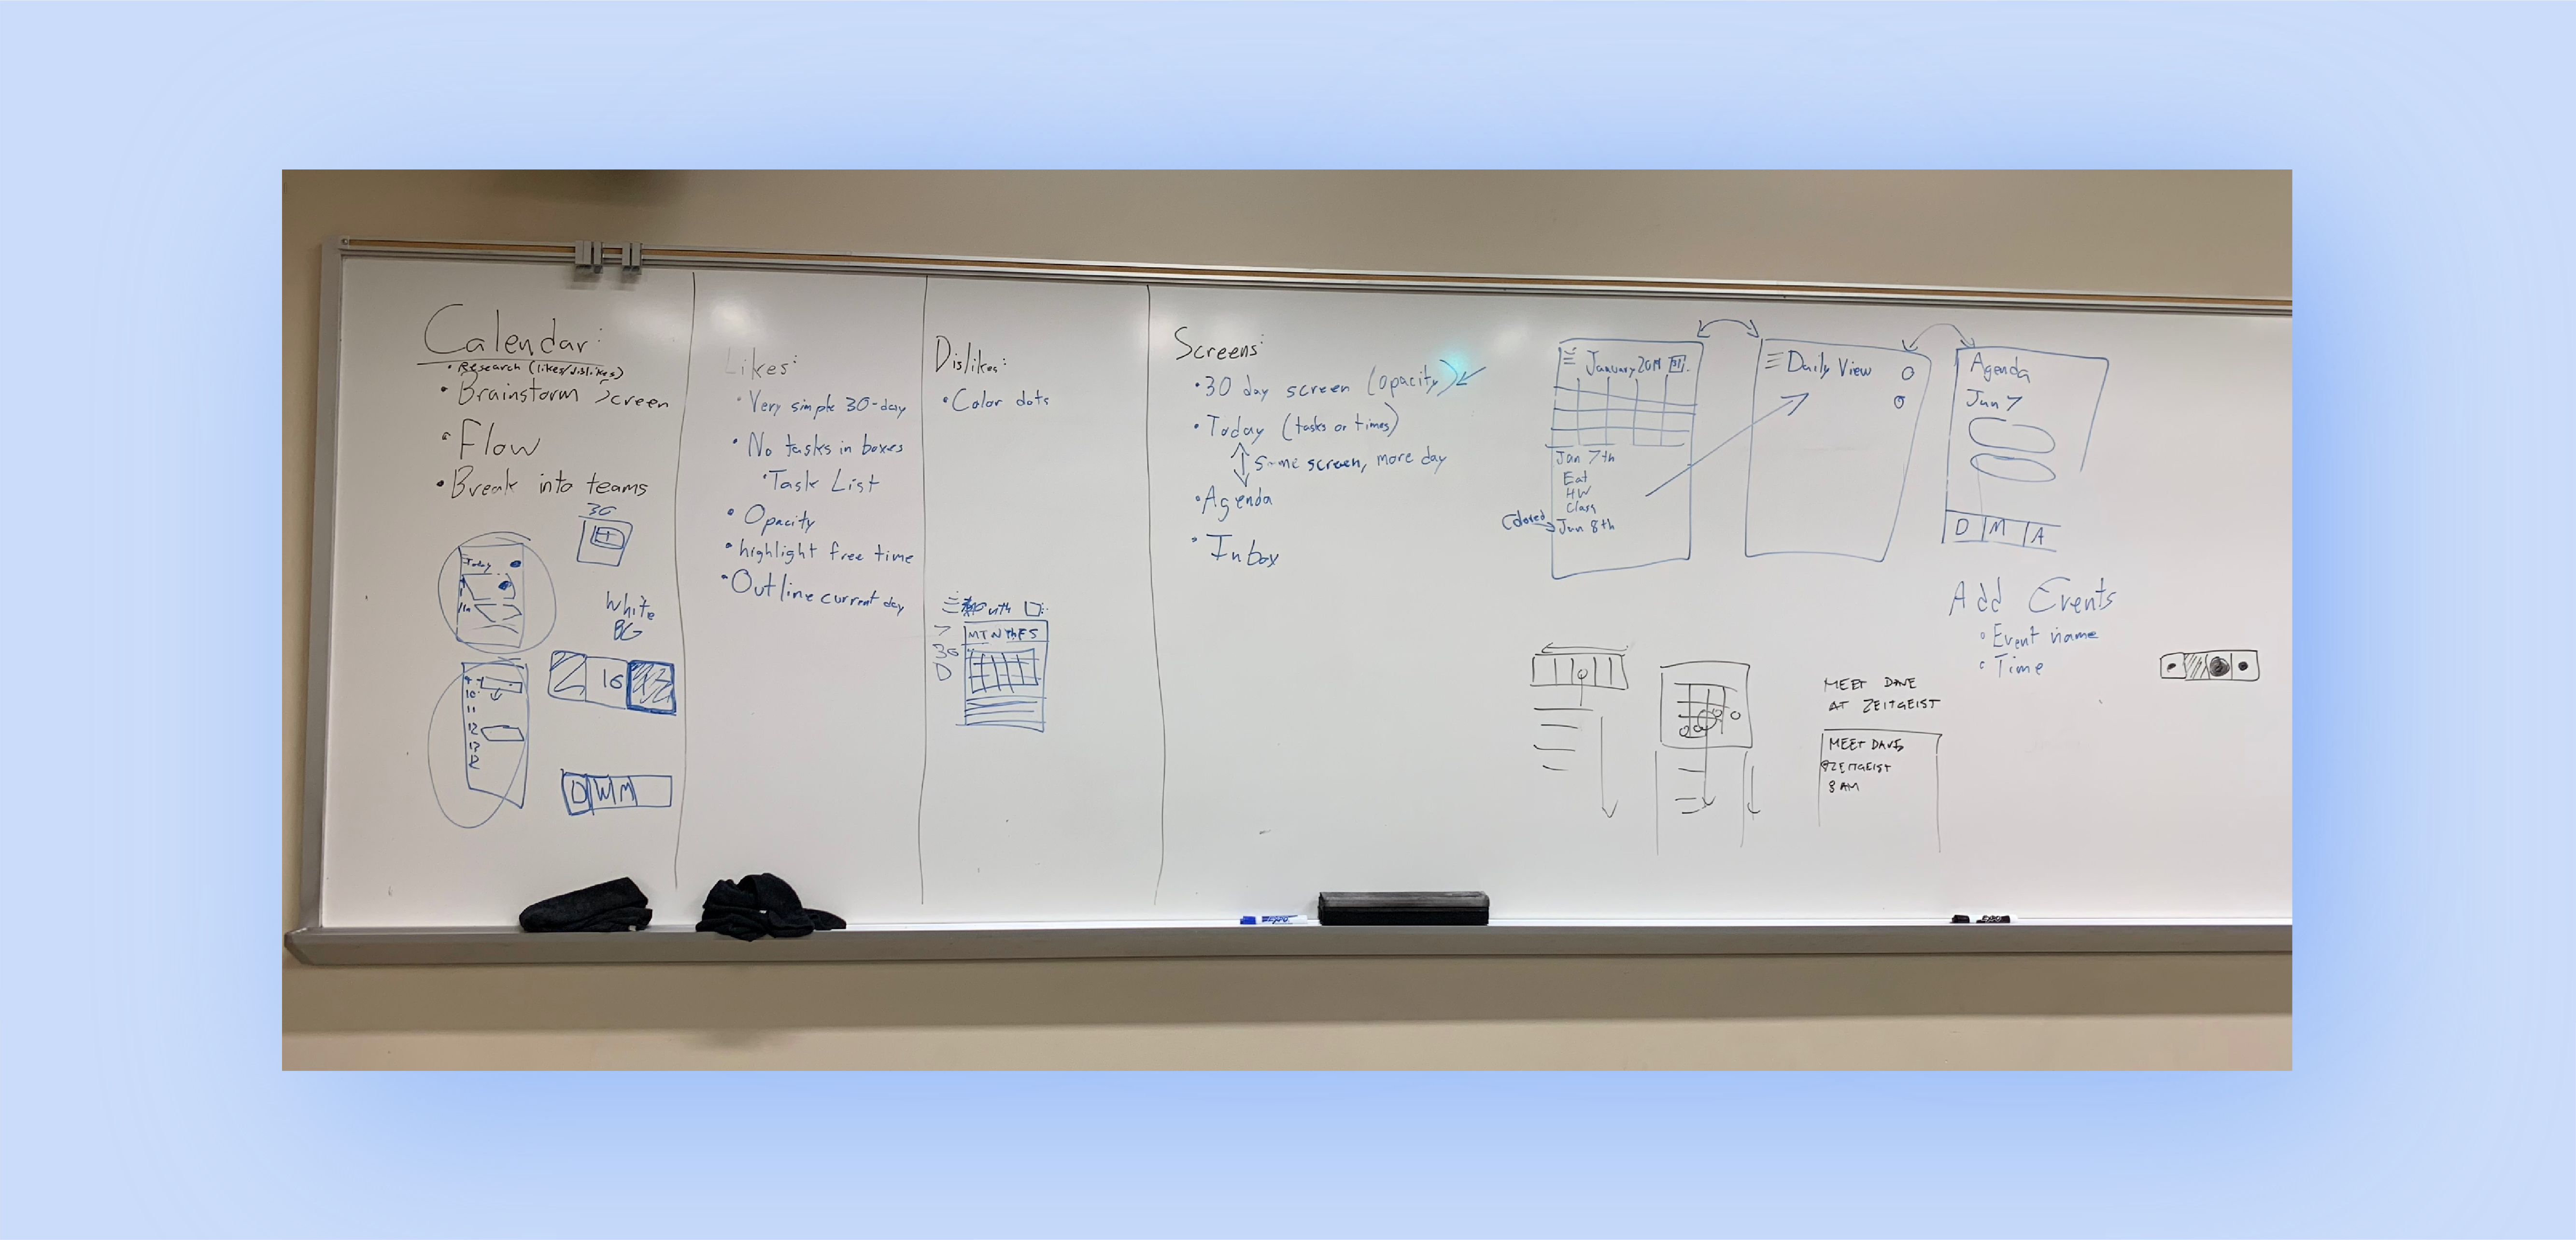 Calendar:
• Research (likes/dislikes)
• Brainstorm Screen
• Flow
• Break into teams
30
Today
11a
White
BG
16
9
10
11
12
13
D W M
Likes:
• Very simple 30-day
• No tasks in boxes
• Task List
• Opacity
• highlight free time
• Outline current day
Dislikes:
• Color dots
Month
7
30
D
M T W Th F S
Screens:
• 30 day screen (opacity)
• Today (tasks or times)
Same screen, more day
• Agenda
• Inbox
January 2019
Jan 7th
Eat
HW
Class
Colored
Jan 8th
Daily View
Agenda
Jan 7
D M A
Add Events
• Event name
• Time
MEET DAVE
AT ZEITGEIST
MEET DAVE
ZEITGEIST
8 AM
EXPO